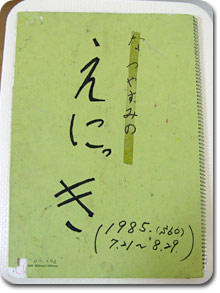 なつやすみの
えにっき
(1985.(S60)
7.21~8.29.)